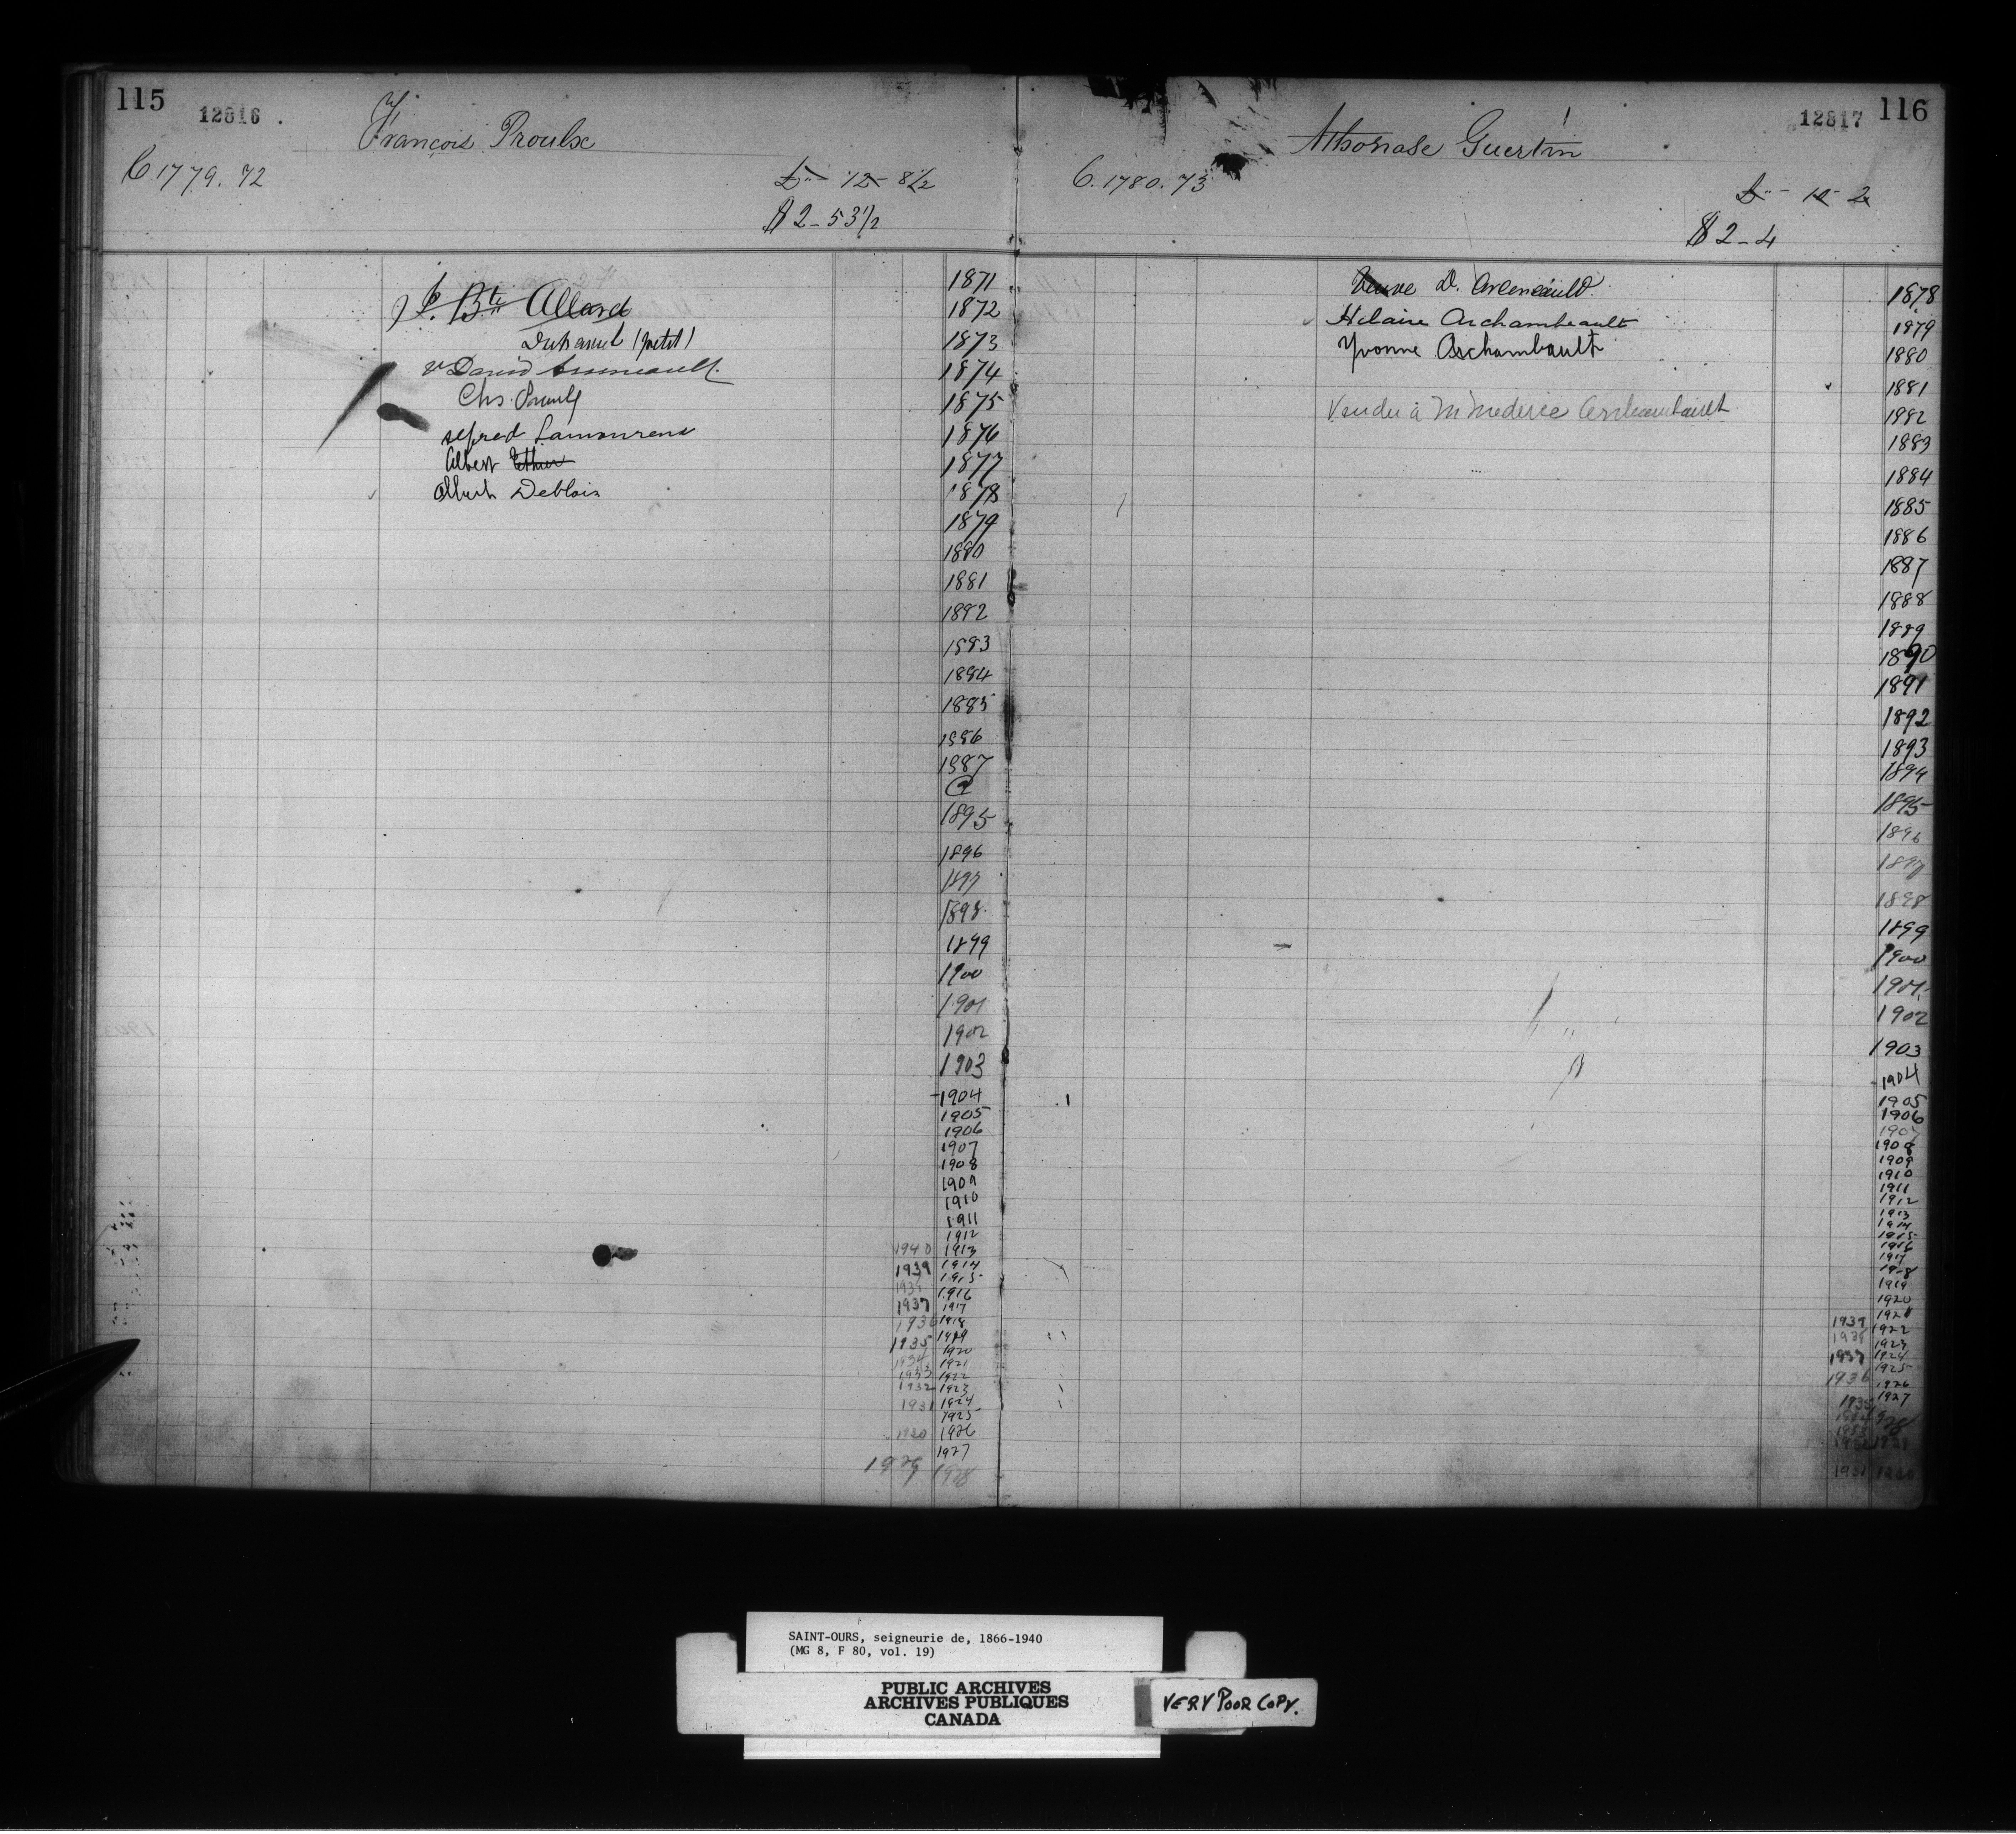 115
12816
François Proulx
C 1779. 72
£ - 12 - 8 1/2
$ 2 - 53 1/2
J. Bte Allard
Duhamel (petit)
v David
Chs. Proulx
Alfred Lamoureux
Albert Ethier
Albert Deblois
1871
1872
1873
1874
1875
1876
1877
1878
1879
1880
1881
1882
1883
1884
1885
1886
1887
1895
1896
1897
1898
1899
1900
1901
1902
1903
1904
1905
1906
1907
1908
1909
1910
1911
1912
1940 1913
1939 1914
1915
1916
1937 1917
1936 1918
1935 1919
1934 1920
1921
1933 1922
1932 1923
1931 1924
1925
1930 1926
1927
1929 1928
116
12817
Athanase Guertin
C. 1780. 73
£ - 10 - 2
$ 2 - 4
Veuve D. Arseneauld
Hilaire Archambeault
Yvonne Archambault
Vendu à M Mederic Archambault
1878
1879
1880
1881
1982
1883
1884
1885
1886
1887
1888
1889
1890
1891
1892
1893
1894
1895
1896
1897
1898
1899
1900
1901
1902
1903
1904
1905
1906
1907
1908
1909
1910
1911
1912
1913
1914
1915
1916
1917
1918
1919
1920
1921
1939 1922
1938 1923
1937 1924
1925
1936 1926
1927
1935 1928
1931 1930
SAINT-OURS, seigneurie de, 1866-1940
(MG 8, F 80, vol. 19)
PUBLIC ARCHIVES
ARCHIVES PUBLIQUES
CANADA
VERY POOR COPY.